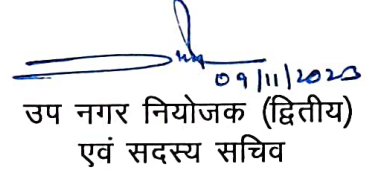 09/11/2023
उप नगर नियोजक (द्वितीय)
एवं सदस्य सचिव